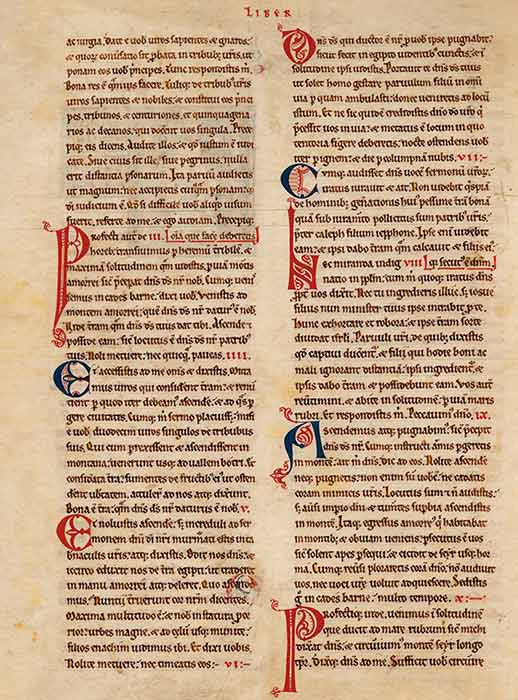 LIBER
ac iurgia. Date e uob uiros sapientes & gnaros:
& quorum conuersatio sit probata in tribubus uris. ut
ponam eos uob principes. Tunc respondistis m.
Bona res e quam uis facere. Tulique de tribub uris
uiros sapientes & nobiles: & constitui eos princi
pes. tribunos. & centuriones. et quinquagena
rios ac decanos. qui docerent uos singula. Prece
pique eis dicens. Audite illos: & quod iustum e iudi
cate. Siue ciuis sit ille siue peregrinus: nulla
erit distantia personarum. Ita paruum audietis
ut magnum: nec accipietis personam: quia
di iudicium e. Quod si difficile uob aliquid uisum
fuerit. referte ad me: & ego audiam. Precepique
omia que facere deberetis:
Profecti autem de III.
horeb: transiuimus per heremum terribilem &
maximam solitudinem quam uidistis. per uiam montis
amorrei sic preceperat dns ds nr nob. Cumque uenis
semus in cades barne. dixi uob. Venistis ad
montem amorrei: quem dns ds nr daturus e nob.
Vide terram quam dns ds tuus dat tibi. Ascende &
posside eam: sic locutus e dns ds nr patrib
tuis. Noli metuere: nec quicquam paueas. IIII.
Et accessistis ad me omnes & dixistis. Mitta
mus uiros qui considerent terram: & renun
tient per quod iter debeamus ascendere: & ad quas per
gere ciuitates. Cumque m sermo placuisset: misi
e uob duodecim uiros singulos de tribubus
suis. Qui cum perrexissent & ascendissent in
montana: uenerunt usque ad uallem botri. &
considerata terra: sumentes de fructib eius ut osten
derent ubertatem. attulerunt ad nos atque dixerunt.
Bona e terra: quam dns ds nr daturus e nob. V.
Et noluistis ascendere: sed increduli ad ser
monem dni di nri murmurati estis in ta
bnaculis uris. atque dixistis. Odit nos dns: &
idcirco eduxit nos de terra egipti: ut traderet
in manu amorrei. atque deleret. Quo ascende
mus? Nuntii terruerunt cor nrm dicentes.
Maxima multitudo e: & nob in statura pro
cerior: urbes magne. & ad celum usque munite:
filios enachim uidimus ibi. Et dixi uobis.
Nolite metuere: nec timeatis eos:- VI:-
Dns ds qui ductor e ur pro uob ipse pugnabit:
sicut fecit in egipto uidentibus cunctis. & in
solitudine ipsi uidistis. Portauit te dns ds tuus
ut solet homo gestare paruulum filium in omni
uia per quam ambulasti: donec ueniretis ad locum
istum. Et nec sic quidem credidistis dno do uro qui
precessit uos in uia: & metatus e locum in quo
tentoria figere deberetis: nocte ostendens uob
iter per ignem: & die per columpnam nubis. VII:-
Cumque audisset dns uocem sermonum urorum:
iratus iurauit & ait. Non uidebit quispiam
de hominib generationis huius pessime terram bonam
quam sub iuramento pollicitus sum patribus uris.
preter caleph filium iephone. Ipse enim uidebit
eam: & ipsi dabo terram quam calcauit & filiis eius.
Nec miranda indig VIII
natio in populum: cum m quoque iratus dns
propter uos dixerit. Nec tu ingredieris illuc. sed iosue
filius nun minister tuus ipse intrabit pro te.
Hunc exhortare & robora: & ipse terram sorte
diuidat isrli. Paruuli uri. de quib dixistis
quod captiui ducerentur: & filii qui hodie boni ac
mali ignorant distantiam: ipsi ingredientur. &
ipsis dabo terram & possidebunt eam. Vos autem
reuertimini. & abite in solitudinem: per uiam maris
rubri. Et respondistis m. Peccauimus dno. IX.
Ascendemus atque pugnabimus: sic precepit
dns ds nr. Cumque instructi armis pergeretis
in montem: ait m dns. Dic ad eos. Nolite ascendere
neque pugnetis. non enim sum uobiscum: ne cadatis
coram inimicis uris. Locutus sum & n audistis:
sed aduersantes imperio dni & tumentes supbia ascendistis
in montem. Itaque egressus amorreus qui habitabat
in montib & obuiam ueniens: persecutus e uos
sic solent apes persequi: & cecidit de seyr usque hor
ma. Cumque reuersi ploraretis coram dno: non audiuit
uos. nec uoci ure uoluit adquiescere. Sedistis
g in cades barne multo tempore. X:-
Profectique inde. uenimus in solitudinem
que ducit ad mare rubrum sic m
dixerat dns: & circuiuimus montem seyr longo
tempore. Dixitque dns ad me. Sufficit uob circuire